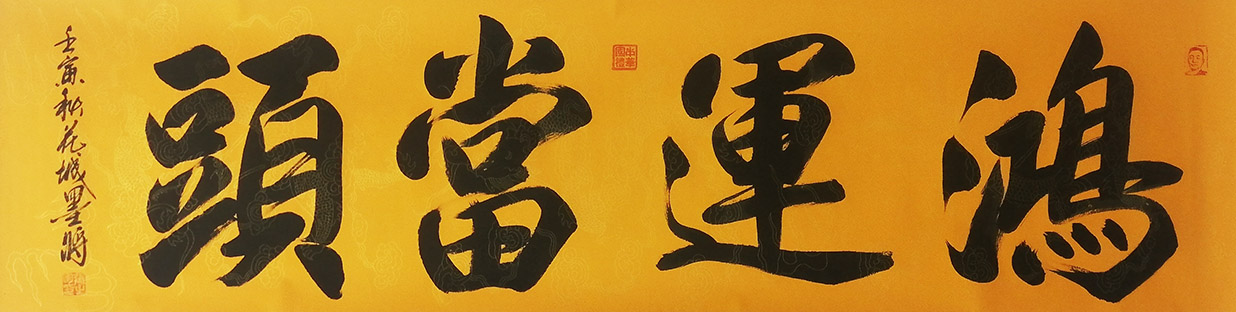 鴻運當頭
壬寅秋花城墨將